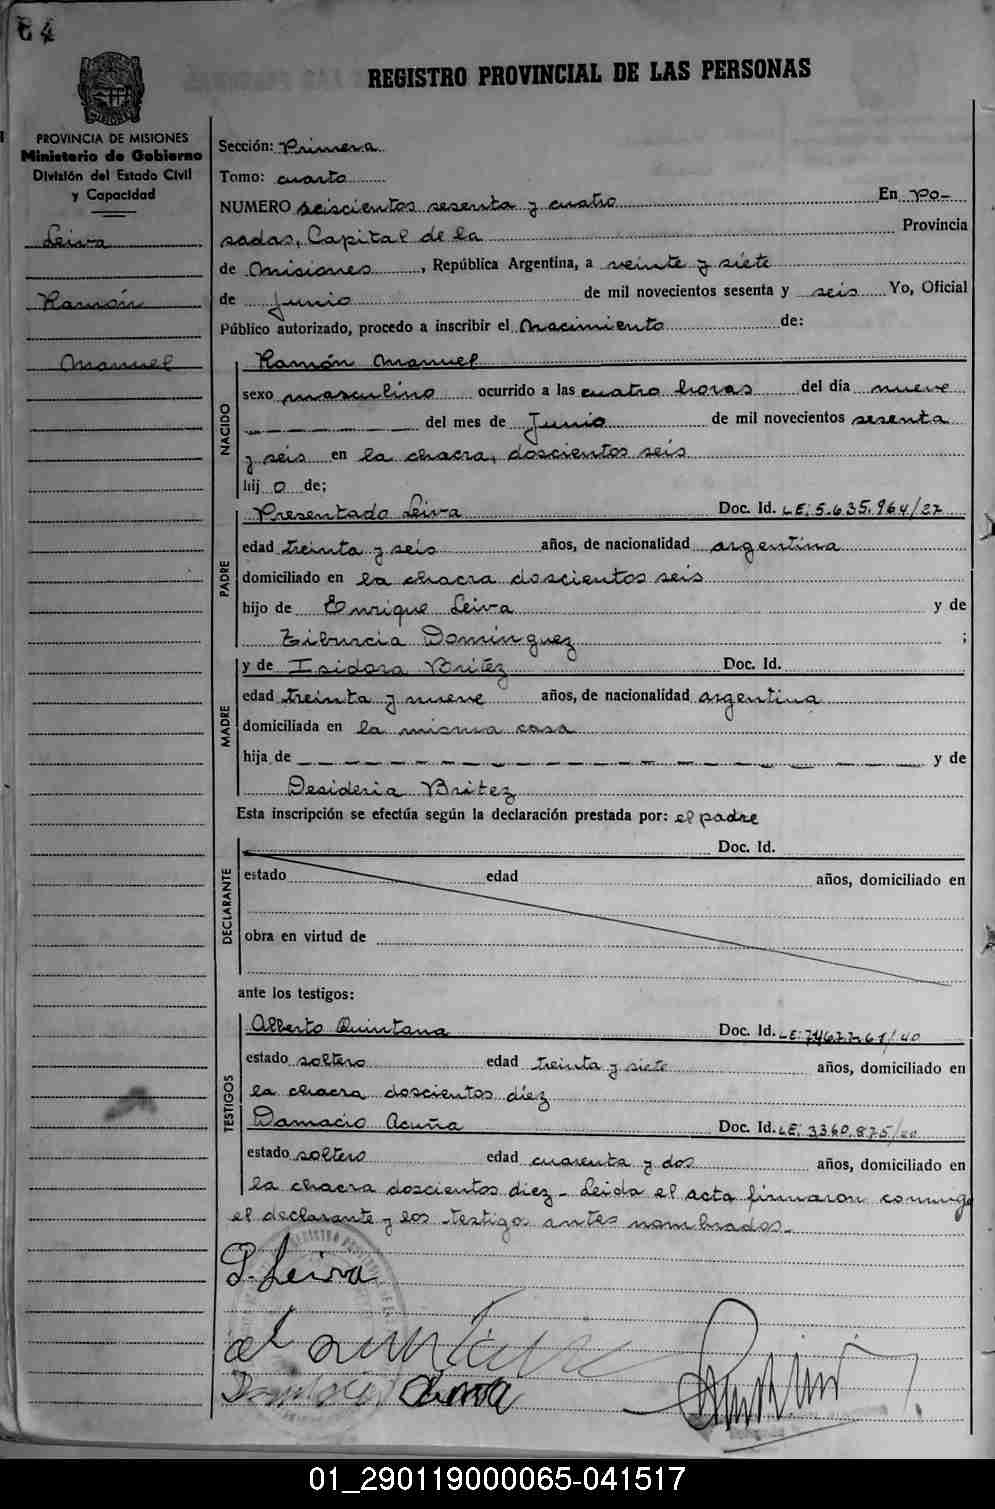 64
REGISTRO PROVINCIAL DE LAS PERSONAS
PROVINCIA DE MISIONES
Ministerio de Gobierno
División del Estado Civil
y Capacidad
Leiva
Ramón
Manuel
Sección: Primera
Tomo: cuarto
NUMERO seiscientos sesenta y cuatro En Po-
sadas, Capital de la Provincia
de Misiones, República Argentina, a veinte y siete
de Junio de mil novecientos sesenta y seis Yo, Oficial
Público autorizado, procedo a inscribir el Nacimiento de:
NACIDO
Ramón Manuel
sexo masculino ocurrido a las cuatro horas del día nueve
del mes de Junio de mil novecientos sesenta
y seis en la chacra, doscientos seis
hij o de;
PADRE
Presentado Leiva Doc. Id. LE: 5.635.964/27
edad treinta y seis años, de nacionalidad argentina
domiciliado en la chacra doscientos seis
hijo de Enrique Leiva y de
Tiburcia Domínguez ;
MADRE
y de Isidora Britez Doc. Id.
edad treinta y nueve años, de nacionalidad argentina
domiciliada en la misma casa
hija de y de
Desideria Britez
Esta inscripción se efectúa según la declaración prestada por: el padre
DECLARANTE
Doc. Id.
estado edad años, domiciliado en
obra en virtud de
ante los testigos:
TESTIGOS
Alberto Quintana Doc. Id. LE:
estado soltero edad treinta y siete años, domiciliado en
la chacra doscientos diéz
Damacio Acuña Doc. Id. LE: 3360.875/
estado soltero edad cuarenta y dos años, domiciliado en
la chacra doscientos diez - Leida el acta firmaron conmigo
el declarante y los testigo antes nombrados.-
P. Leiva
01_290119000065-041517